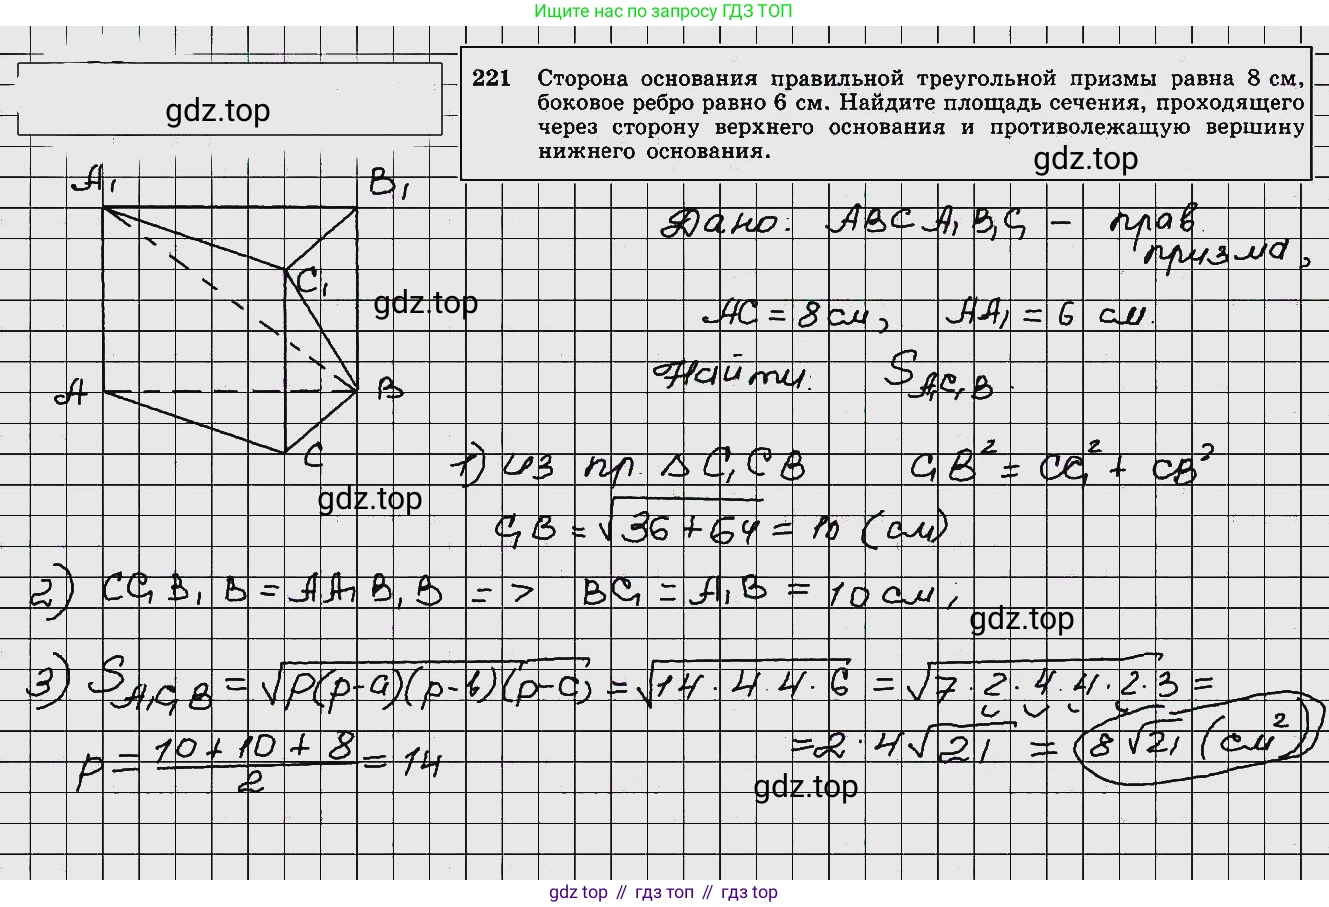 Ищите нас по запросу ГДЗ ТОП
gdz.top
221 Сторона основания правильной треугольной призмы равна 8 см,
боковое ребро равно 6 см. Найдите площадь сечения, проходящего
через сторону верхнего основания и противолежащую вершину
нижнего основания.
gdz.top
A₁
B₁
C₁
A
B
C
gdz.top
gdz.top
Дано: ABCA₁B₁C₁ – прав
призма,
AC = 8 см, AA₁ = 6 см.
Найти: S A₁C₁B.
1) из пр. Δ C₁CB C₁B² = CC₁² + CB²
C₁B = √36+64 = 10 (см)
2) CC₁B₁B = AA₁B₁B => BC₁ = A₁B = 10 см,
gdz.top
3) S A₁C₁B = √p(p-a)(p-b)(p-c) = √14·4·4·6 = √7·2·4·4·2·3 =
= 2·4√21 = 8√21 (см²)
p = (10+10+8)/2 = 14
gdz.top
gdz top // гдз топ // gdz top